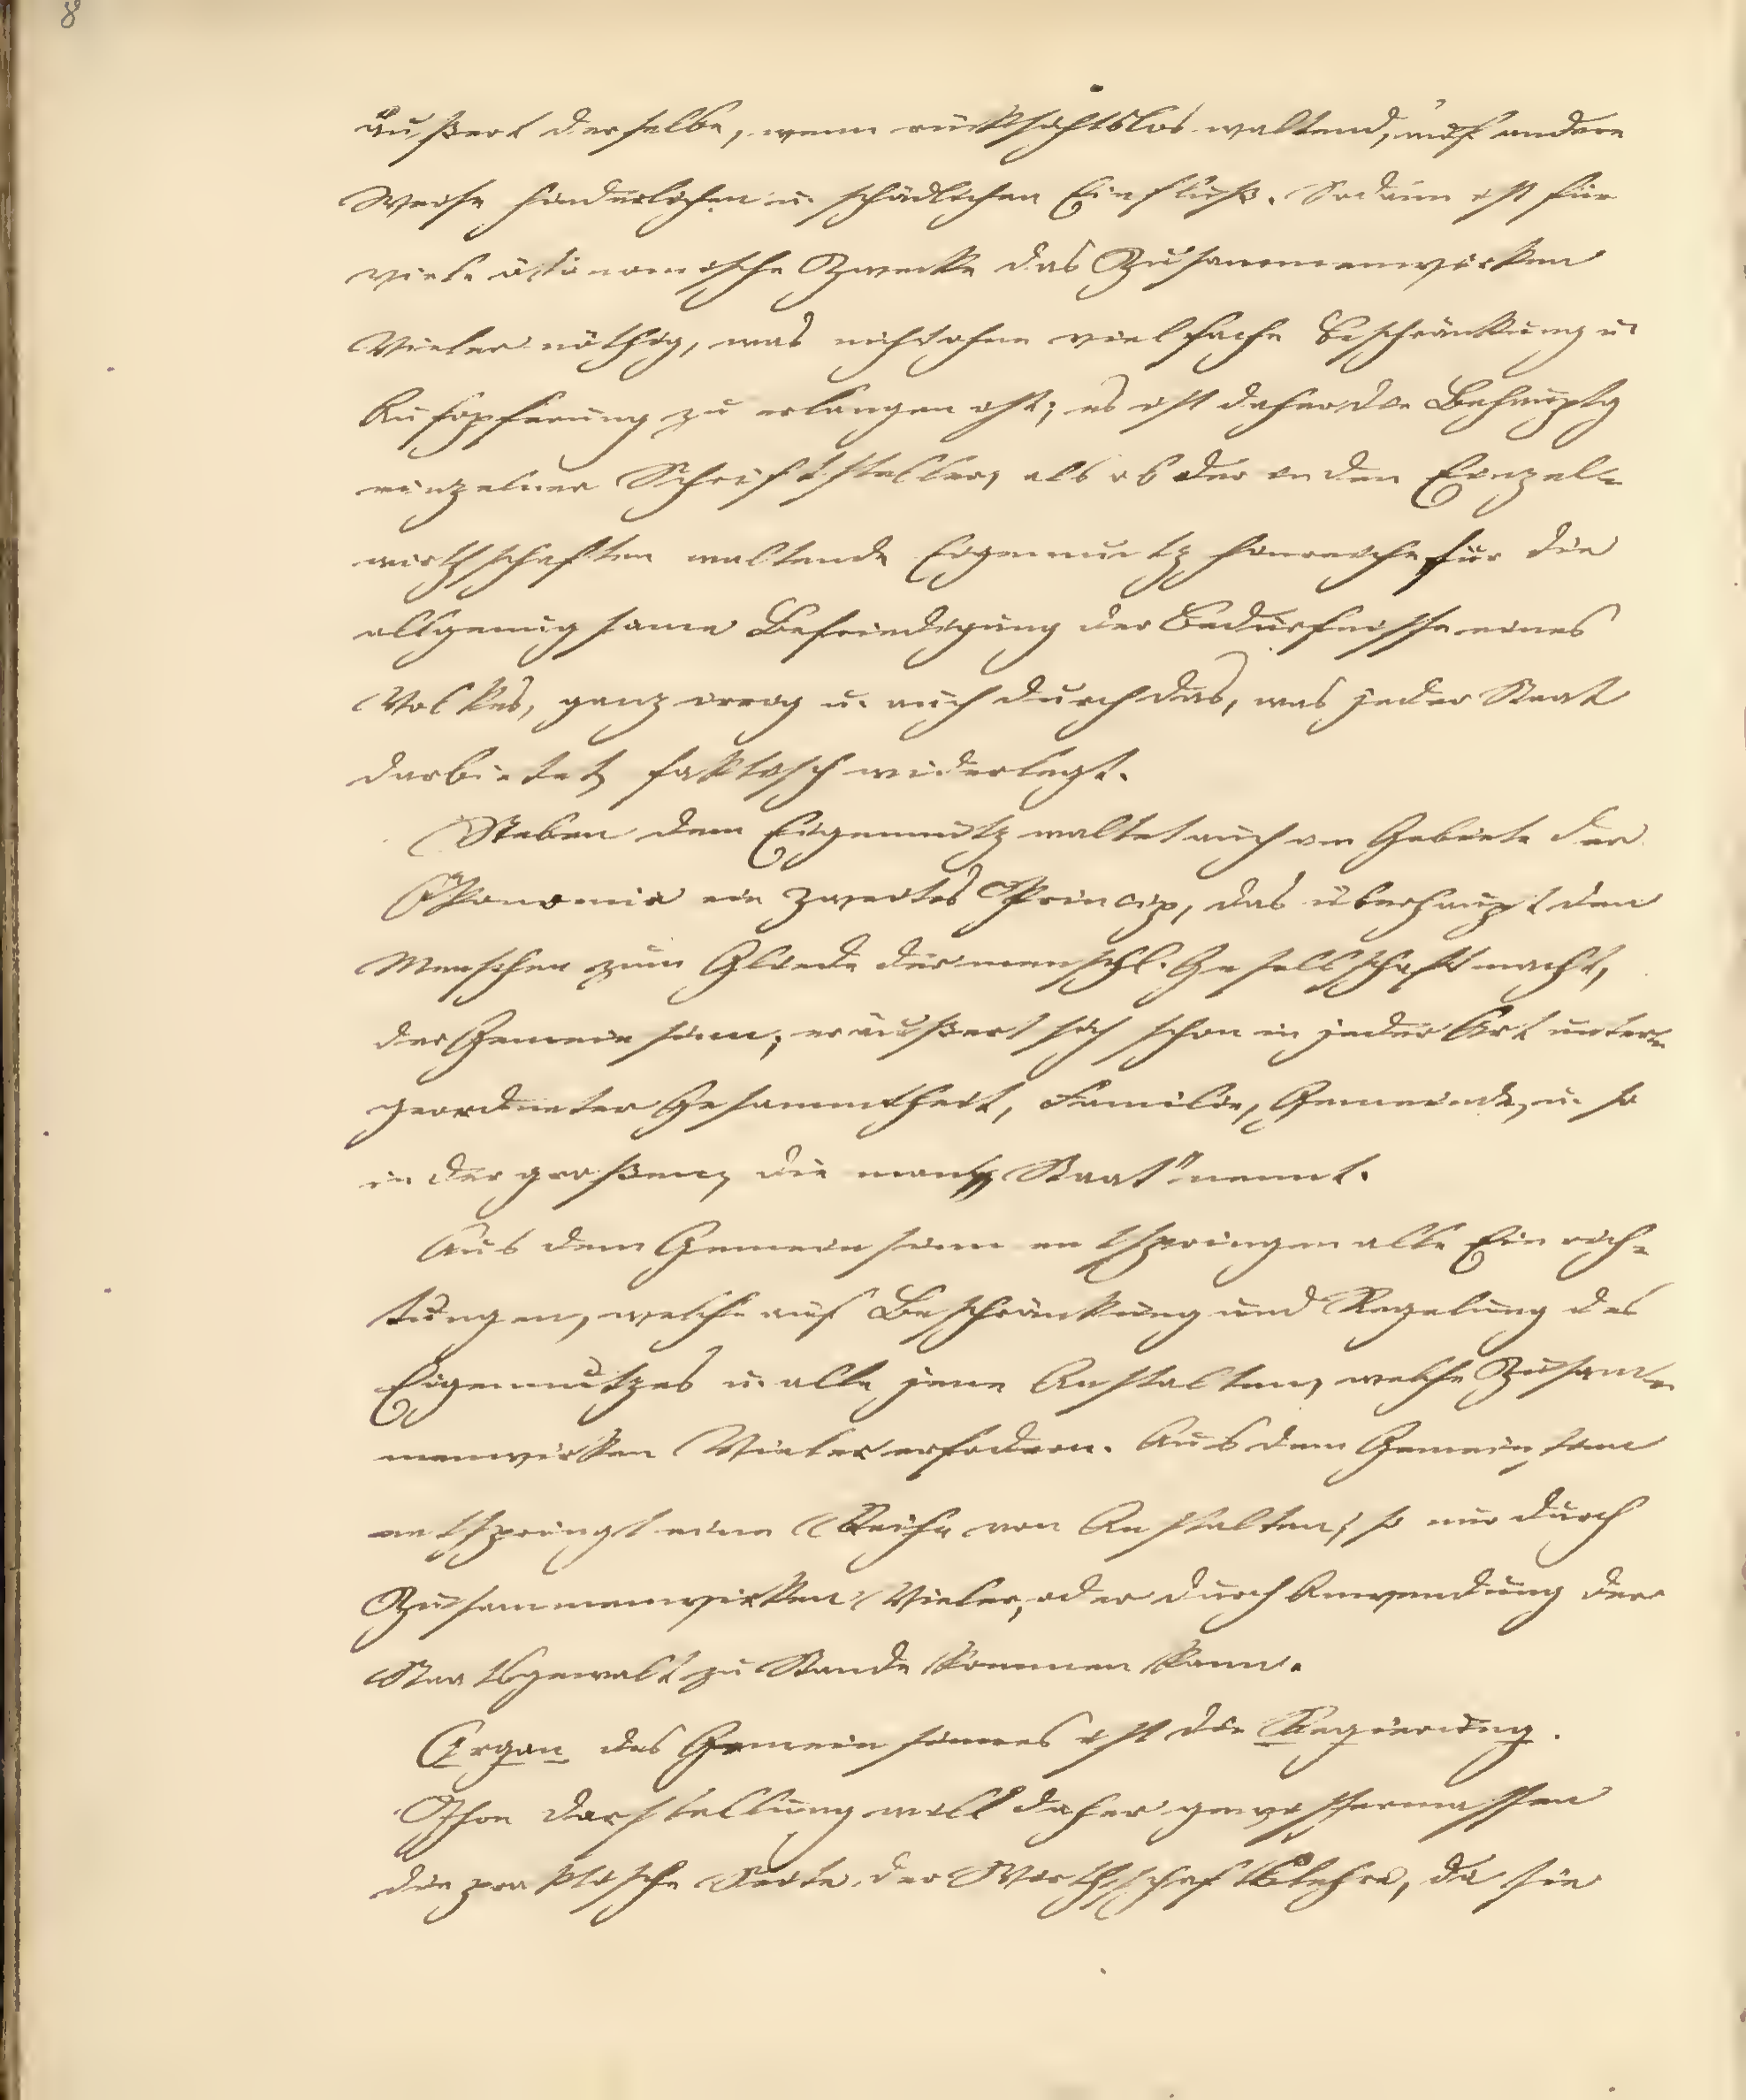 8
äußert derselbe, wenn rücksichtslos waltend, auf andere
Weise hinderlichen u. schädlichen Einfluß. Sodann ist für
viele ökonomische Zwecke das Zusammenwirken
Vieler nöthig, was nicht ohne vielfache Beschränkung u
Aufopferung zu erlangen ist; es ist daher die Behauptg
einzelner Schriftsteller, als ob der in den Einzel-
wirthschaften waltende Eigennutz hinreiche für die
allgenugsame Befriedigung der Bedürfnisse eines
Volkes, ganz irrig u. auch durch das, was jeder Staat
darbietet, faktisch widerlegt.
Neben dem Eigennutz waltet auch im Gebiete der
Ökonomie ein zweites Princip, das überhaupt den
Menschen zum Gliede der menschl. Gesellschaft macht,
der Gemeinsinn; er äußert sich schon in jeder Art unter-
geordneter Gesammtheit, Familie, Gemeinde, u. so
in der großen, die man „Staat" nennt.
Aus dem Gemeinsinn entspringen alle Einrich-
tungen, welche auf Beschränkung und Regelung des
Eigennutzes u. alle jene Anstalten, welche Zusam-
menwirken Vieler erfodern. Aus dem Gemeinsinn
entspringt eine Reihe von Anstalten, so nur durch
Zusammenwirken Vieler, oder durch Anwendung der
Staatsgewalt zu Stande kommen kann.
Organ des Gemeinsinnes ist die Regierung.
Ihre Darstellung will daher gewissermassen
die praktische Seite der Wirthschaftslehre, da sie